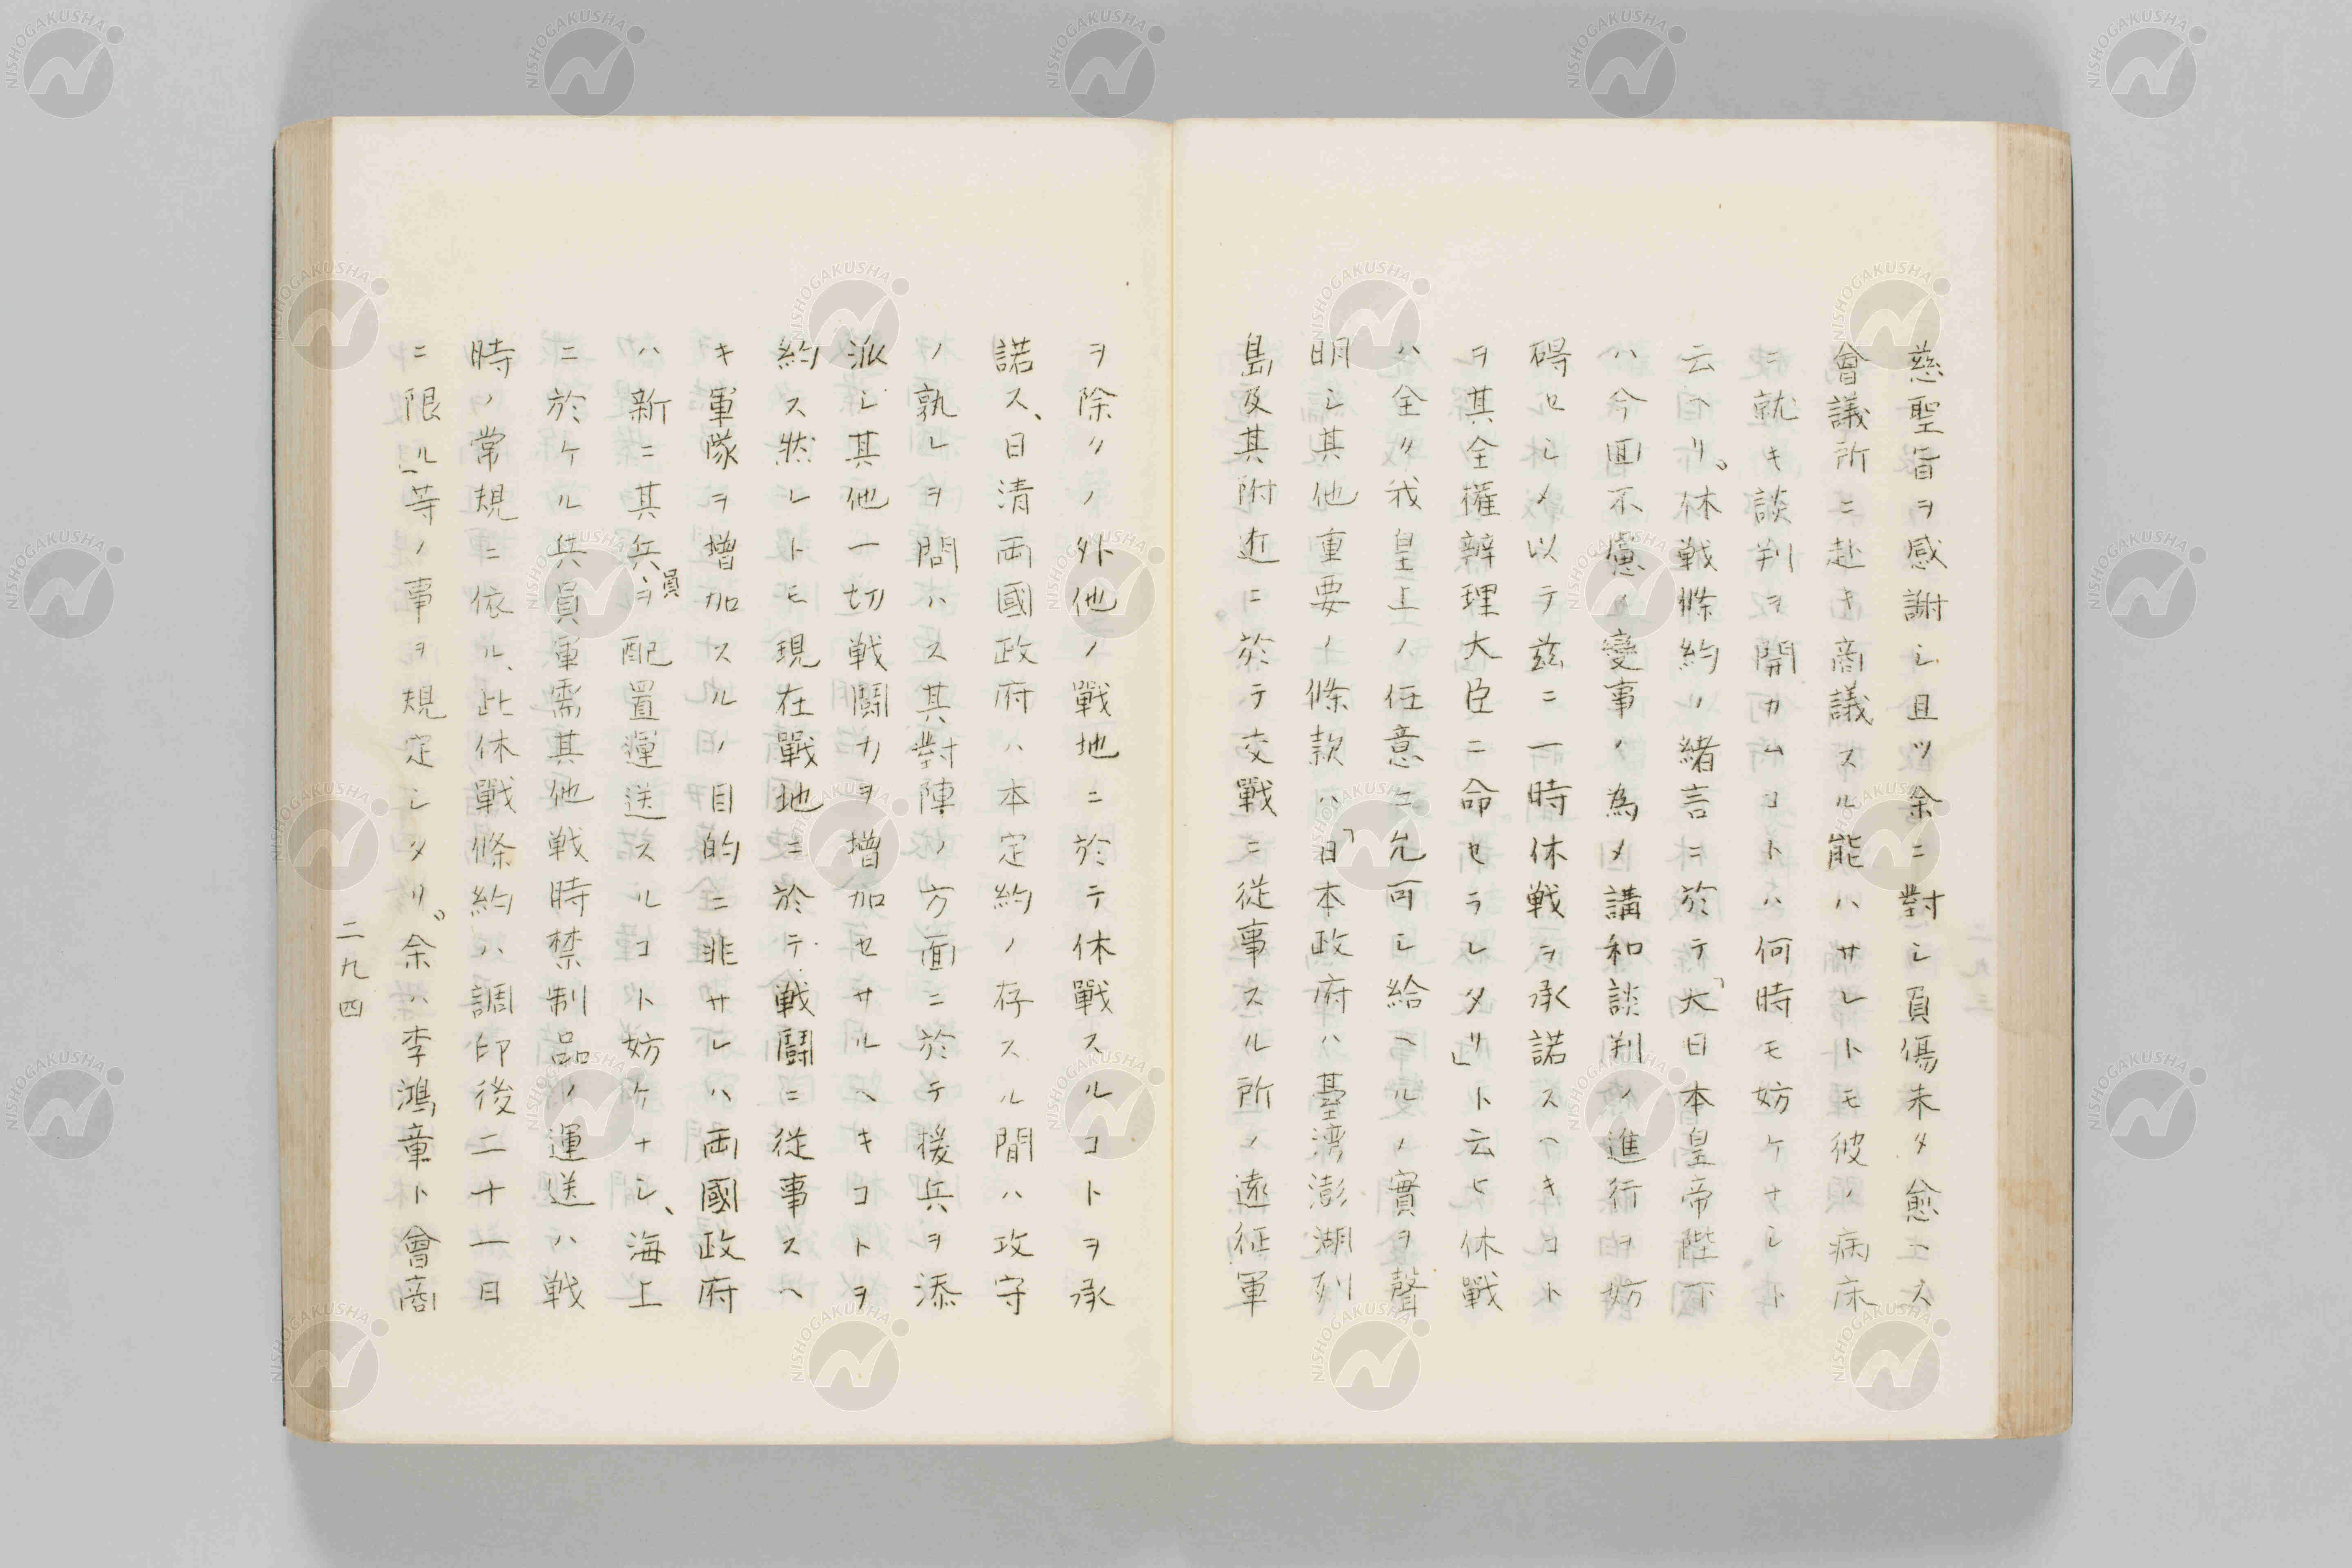 慈聖旨ヲ感謝シ且ツ余ニ對シ負傷未タ愈ヘス
會議所ニ赴キ商議スル能ハサレトモ彼ノ病床
ニ就キ談判ヲ開カムコトハ何時モ妨ケナシト
云ヘリ。休戦條約ノ緒言ニ於テ「大日本皇帝陛下
ハ今回不慮ノ變事ノ為メ講和談判ノ進行ヲ妨
碍セシメ以テ茲ニ一時休戦ヲ承諾スヘキコト
ヲ其全權辨理大臣ニ命セラレタリ」ト云ヒ休戰
ハ全ク我皇上ノ任意ニ允可シ給ヘルノ實ヲ聲
明シ其他重要ノ條款ハ「日本政府ハ臺湾澎湖列
島及其附近ニ於テ交戰ニ従事スル所ノ遠征軍
ヲ除クノ外他ノ戰地ニ於テ休戰スルコトヲ承
諾ス、日清両國政府ハ本定約ノ存スル間ハ攻守
ノ孰レヲ問ハス其對陣ノ方面ニ於テ援兵ヲ添
派シ其他一切戦鬪力ヲ増加セサルヘキコトヲ
約ス然レトモ現在戰地ニ於テ戦鬪ニ従事スヘ
キ軍隊ヲ増加スルノ目的ニ非サレハ両國政府
ハ新ニ其兵員ヲ配置運送スルコト妨ケナシ、海上
ニ於ケル兵員軍需其他戦時禁制品ノ運送ハ戦
時ノ常規ニ依ル、此休戰條約ハ調印後二十一日
ニ限ル」等ノ事ヲ規定シタリ。余ハ李鴻章ト會商
二九四
NISHOGAKUSHA